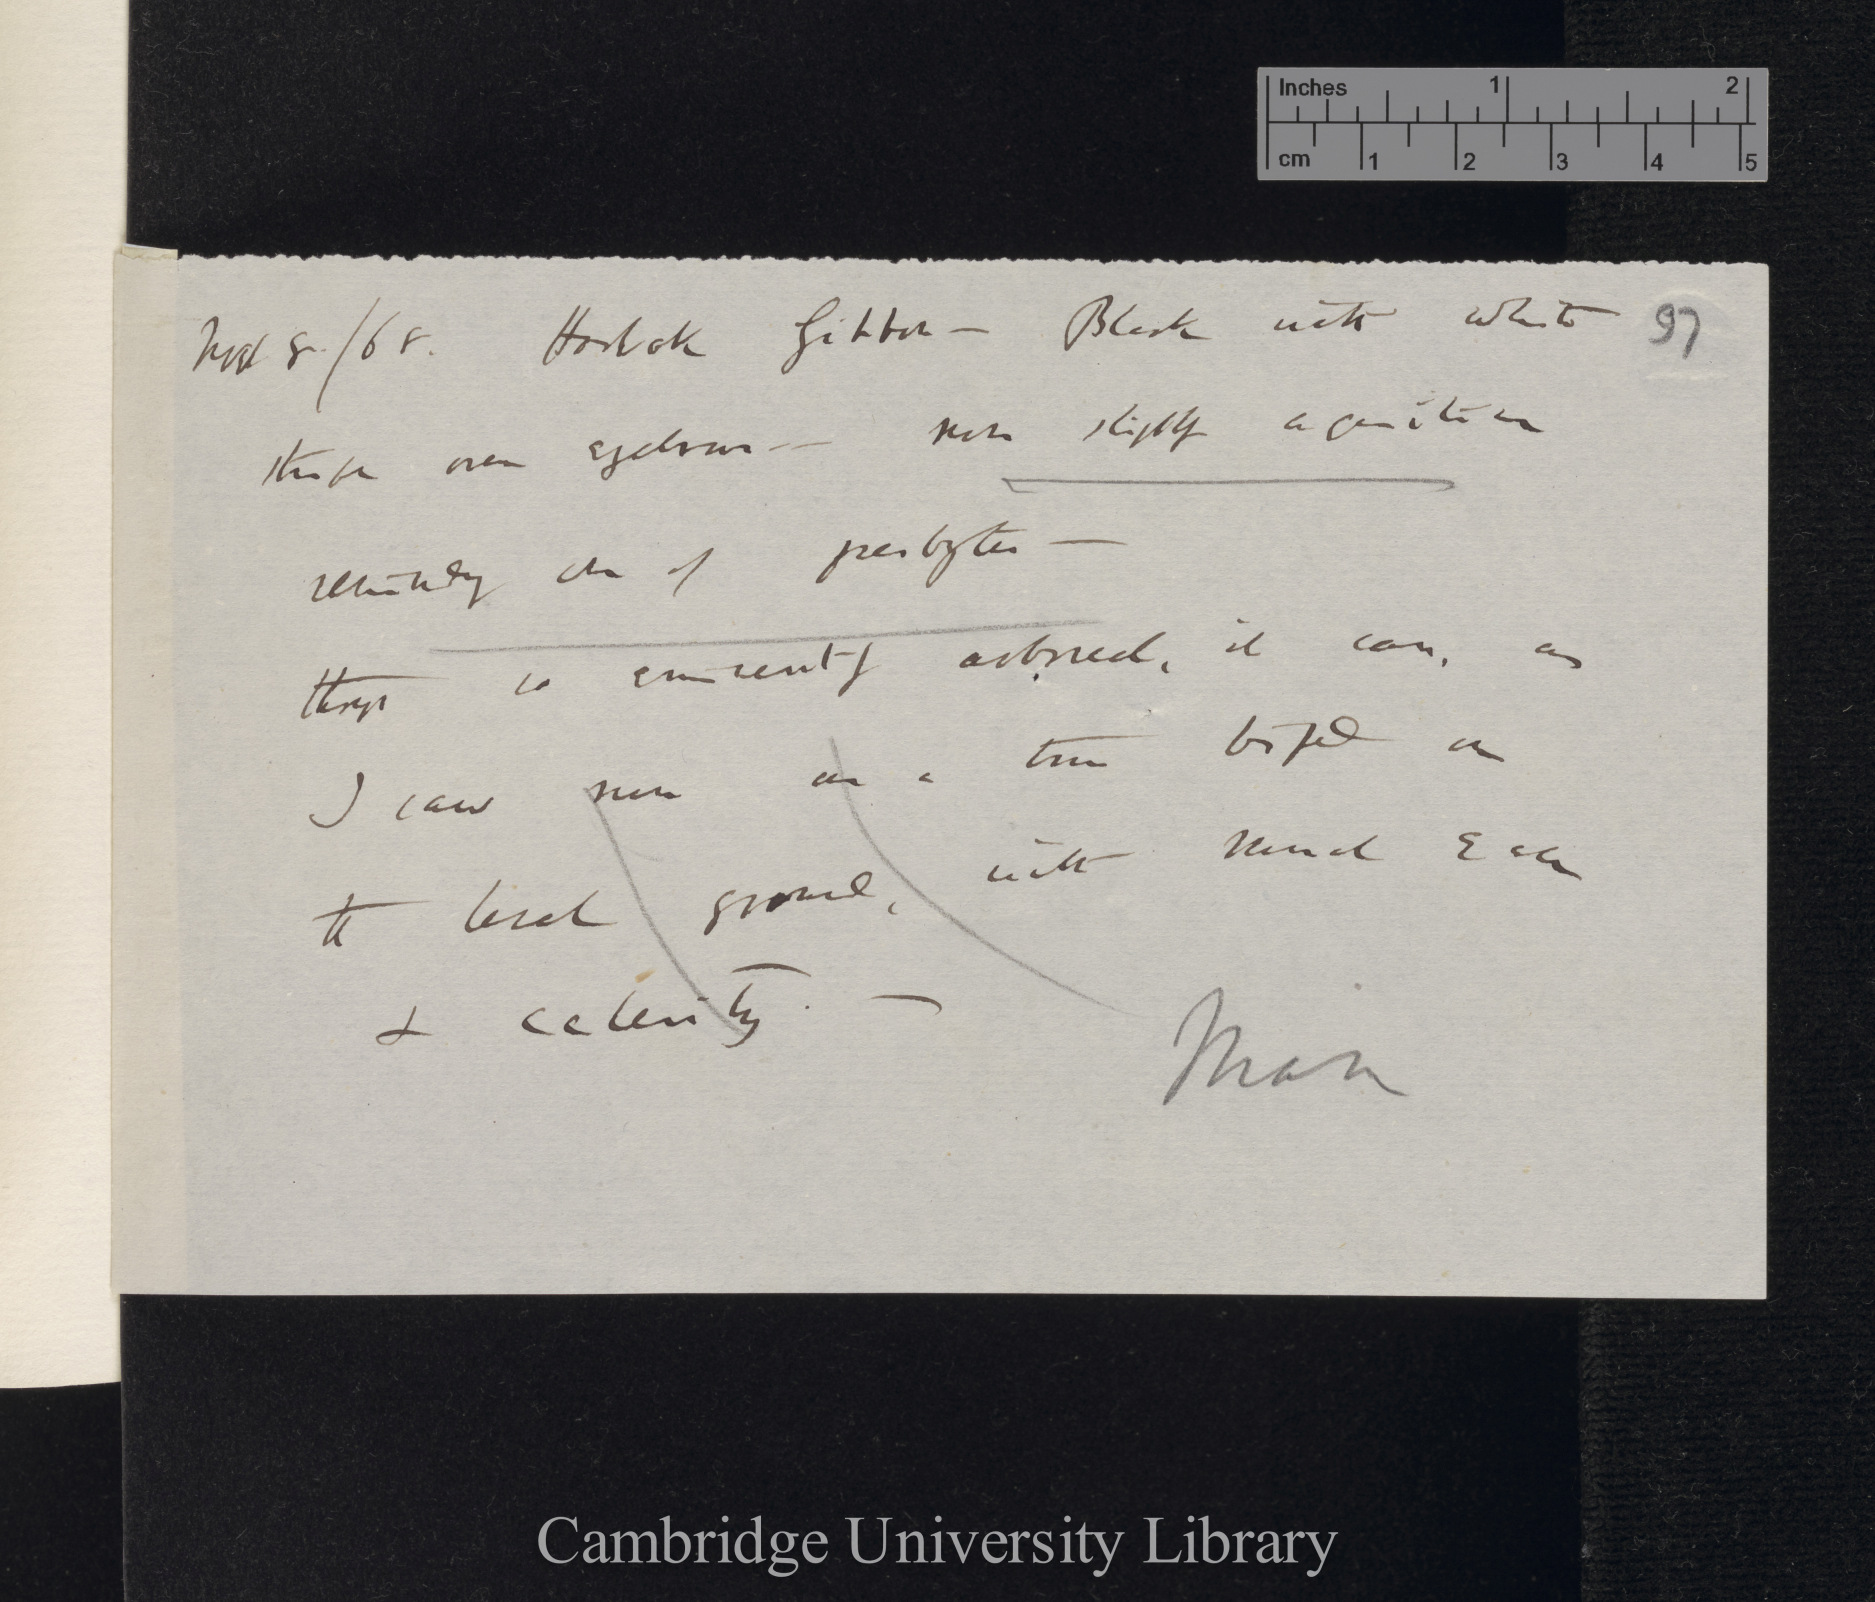 Inches 1 2
cm 1 2 3 4 5
97
Sept 8./68. Hoolock Gibbon — Black with white
stripe over eyebrows — nose slightly aquiline
reminding one of presbyter —
though so eminently arboreal, it can, as
I saw run as a true biped on
the level ground, with much ease
& celerity. —
Man
Cambridge University Library